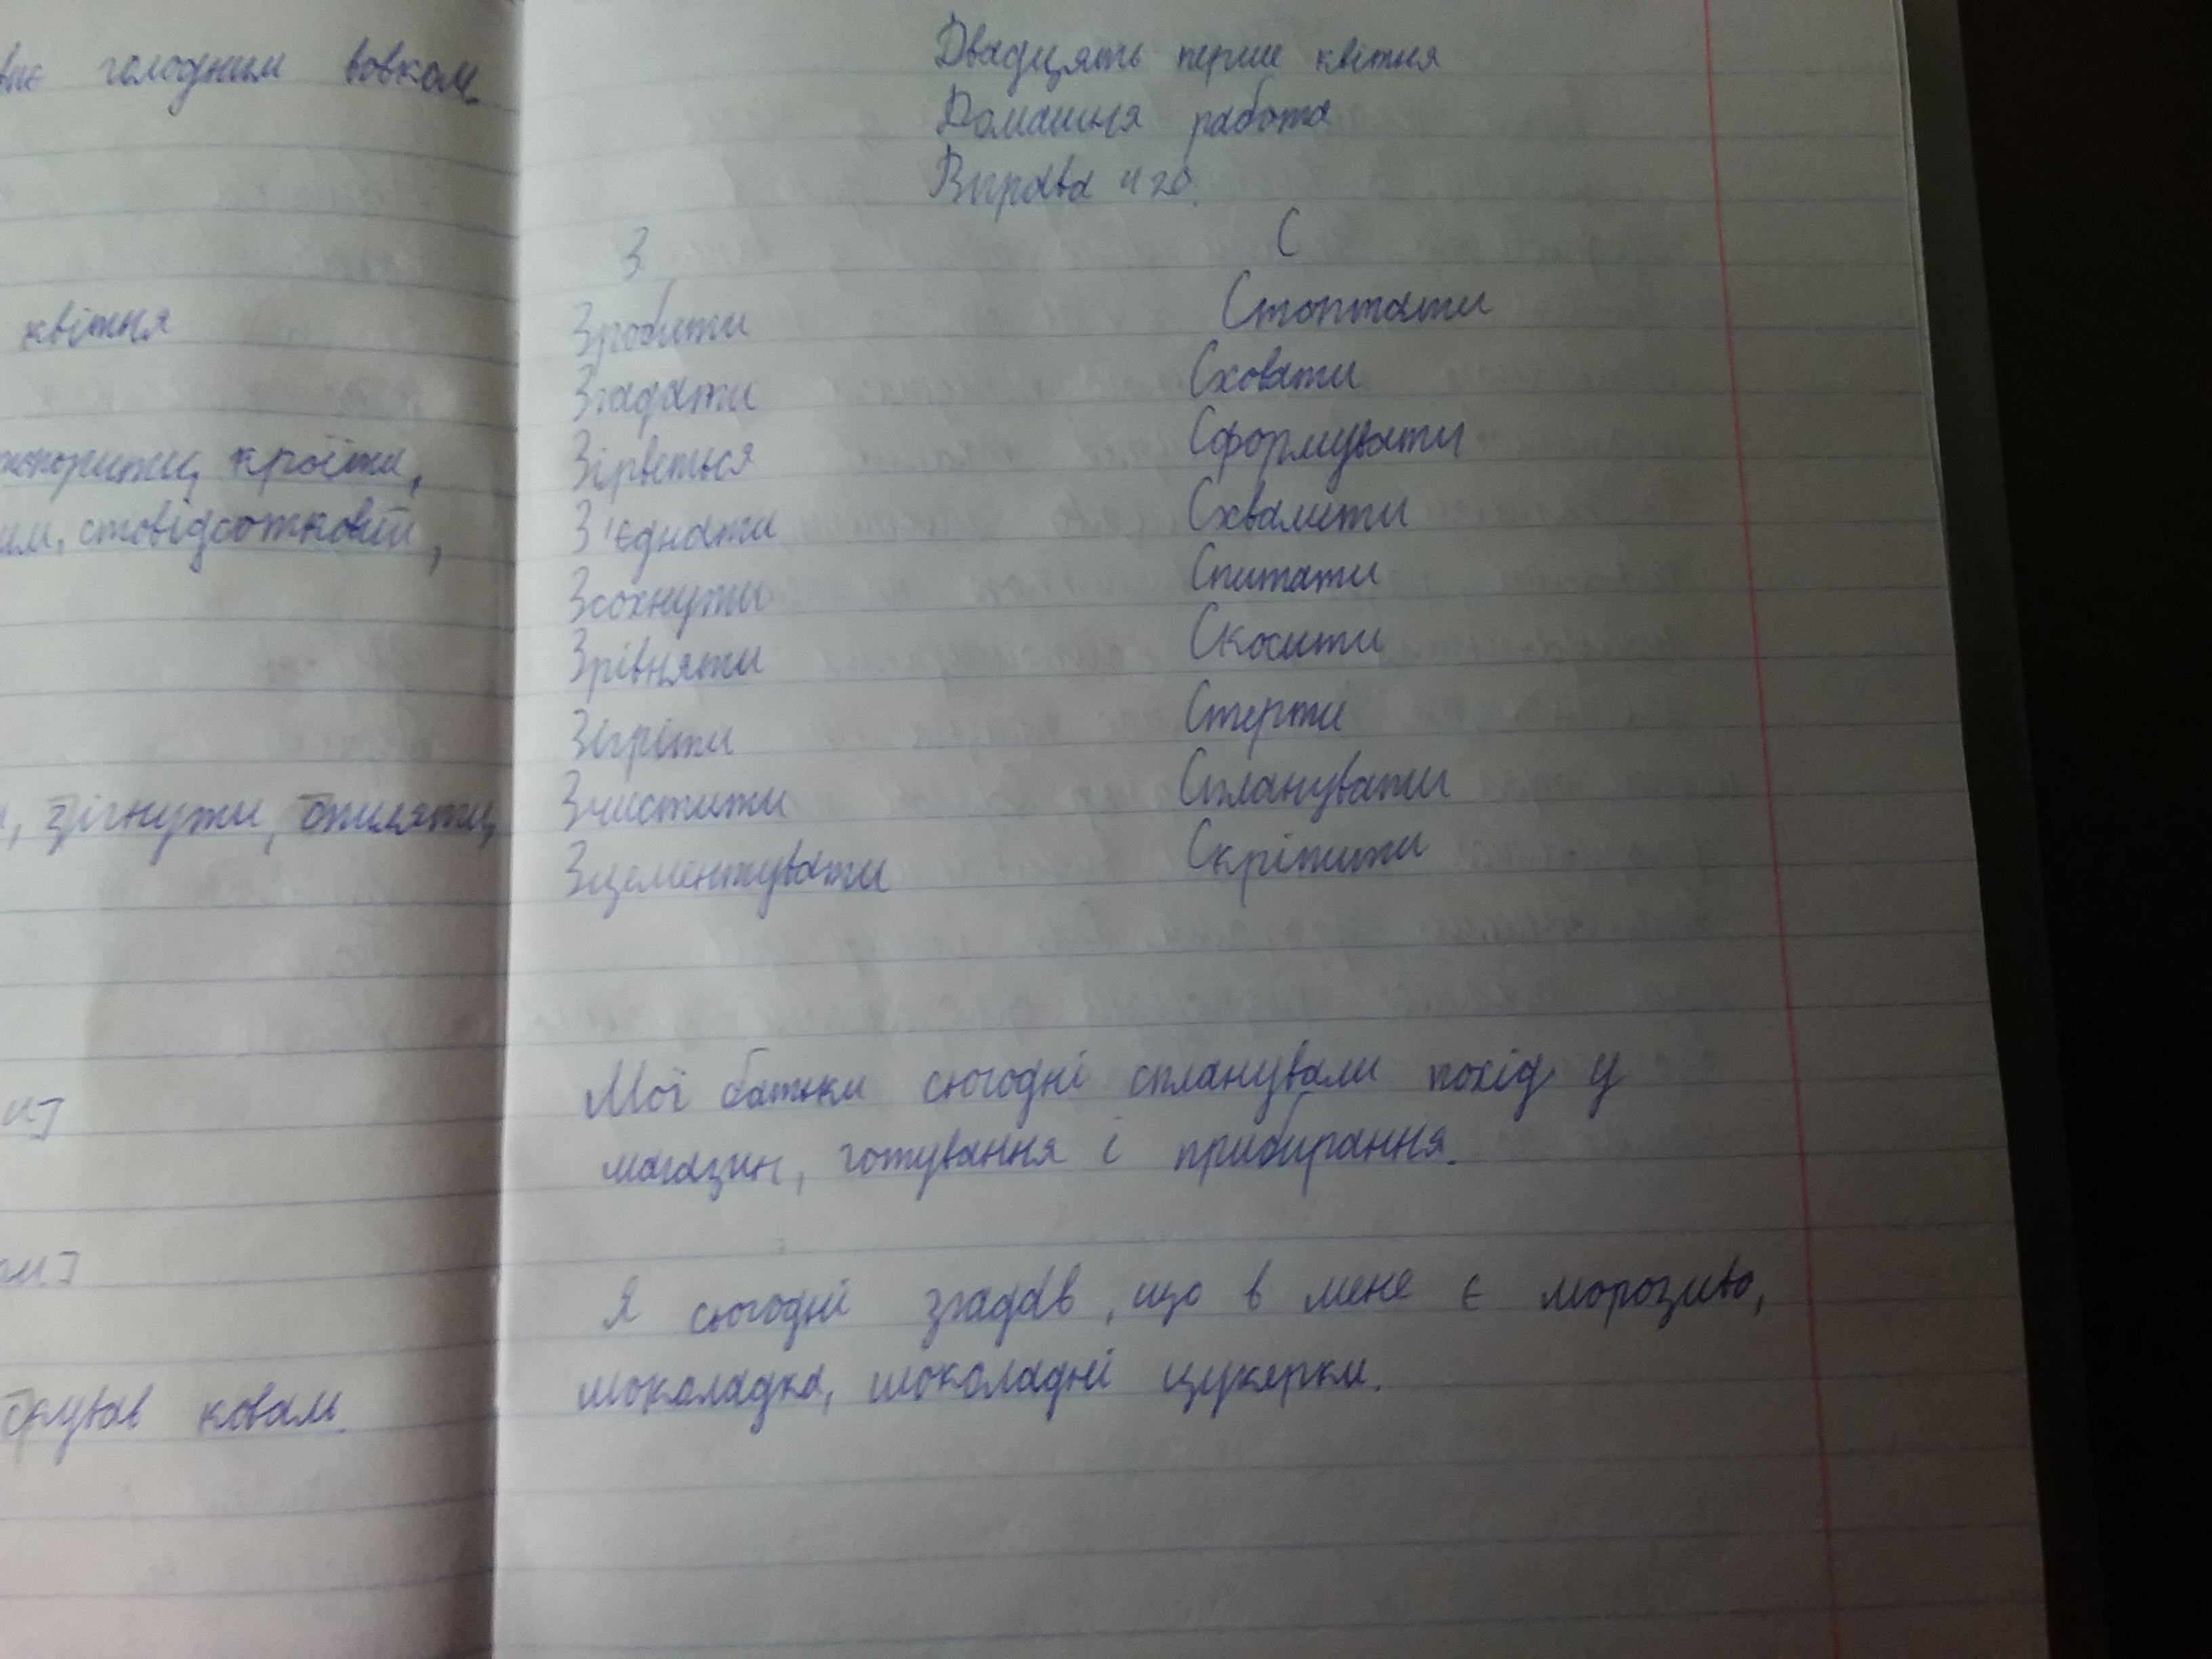 голодним вовком.
квітня
кроїти,
стовідсотковий,
зігнути, спиляти,
коваль.
Двадцять перше квітня
Домашня работа
Вправа 420.
З С
Зробити Стоптати
Згадати Сховати
Зірветься Сформувати
З'єднати Схвалити
Зсохнути Спитати
Зрівняти Скосити
Зігріти Стерти
Зчистити Спланувати
Зцементувати Скріпити
Мої батьки сьогодні спланували похід у
магазин, готування і прибирання.
Я сьогодні згадав, що в мене є морозиво,
шоколадка, шоколадні цукерки.